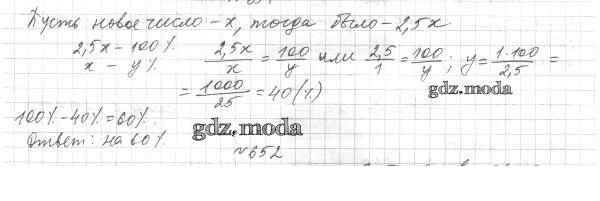 Пусть новое число - x, тогда было - 2,5x
2,5x - 100%
x - y%
2,5x/x = 100/y или 2,5/1 = 100/y ; y = 1·100/2,5 =
= 1000/25 = 40 (%)
gdz.moda
100% - 40% = 60%.
gdz.moda
Ответ: на 60%.
№652